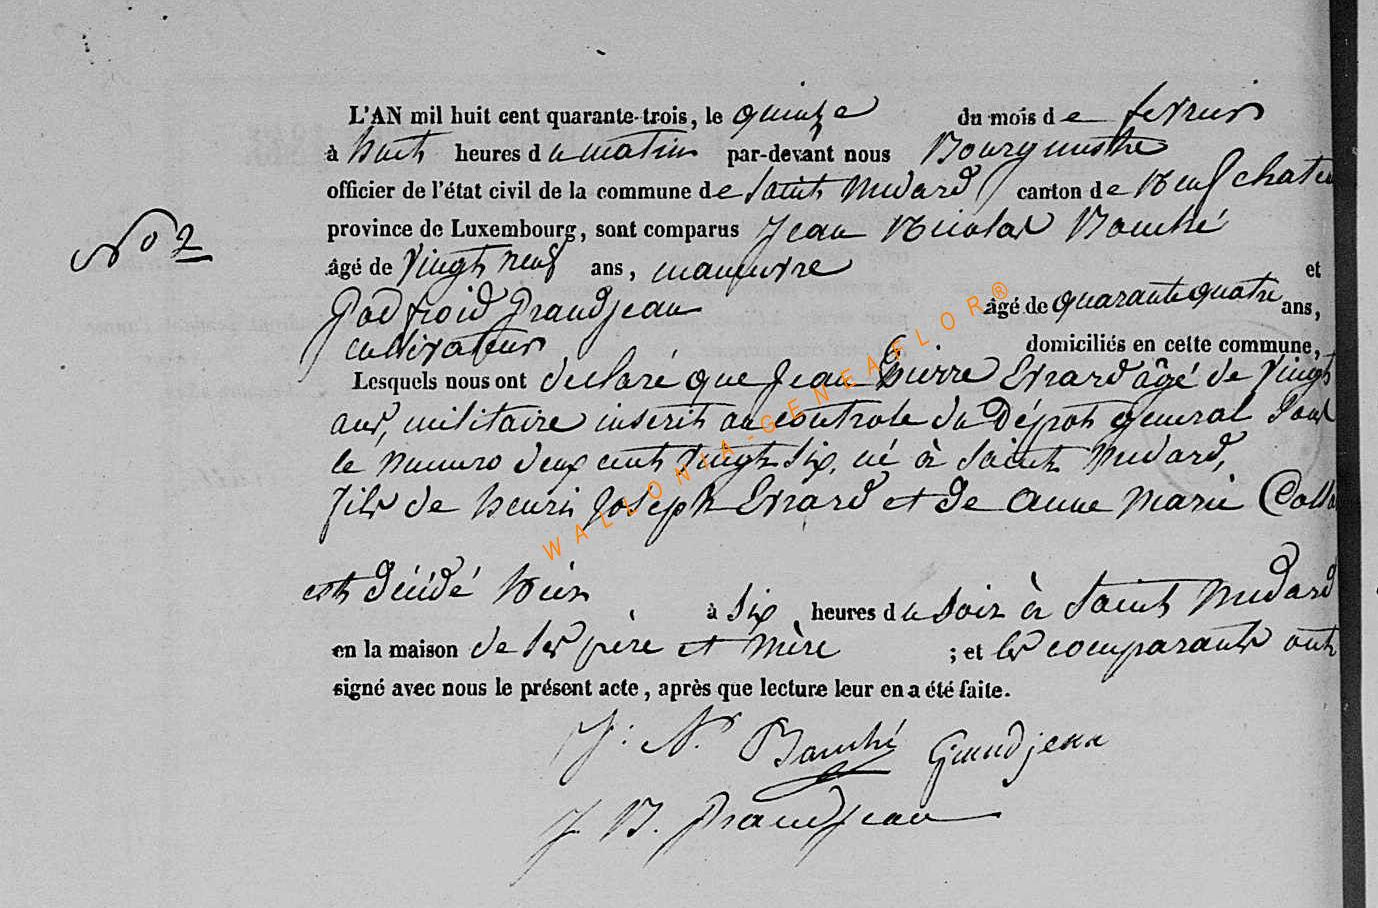 L'AN mil huit cent quarante-trois, le quinze du mois de fevrier
à huit heures du matin par-devant nous Bourgmestre
officier de l'état civil de la commune de Saint Medard canton de Neufchateau
province de Luxembourg, sont comparus Jean Nicolas Bouché
No 2
âgé de Vingt neuf ans, manœuvre et
Godfroid Grandjean âgé de quarante quatre ans,
cultivateur domiciliés en cette commune,
Lesquels nous ont declaré que Jean Pierre Evrard âgé de Vingt
ans, militaire inscrit au controle du Dépot général sous
le numero deux cent vingt six, né à Saint Medard,
fils de henri Joseph Evrard et de Anne Marie
est décédé hier à six heures du soir à Saint Medard
en la maison de ses père et mère ; et les comparants ont
signé avec nous le présent acte, après que lecture leur en a été faite.
J. N. Bouché Grandjean
J B. Grandjean
WALLONIA-GENEAFLOR®